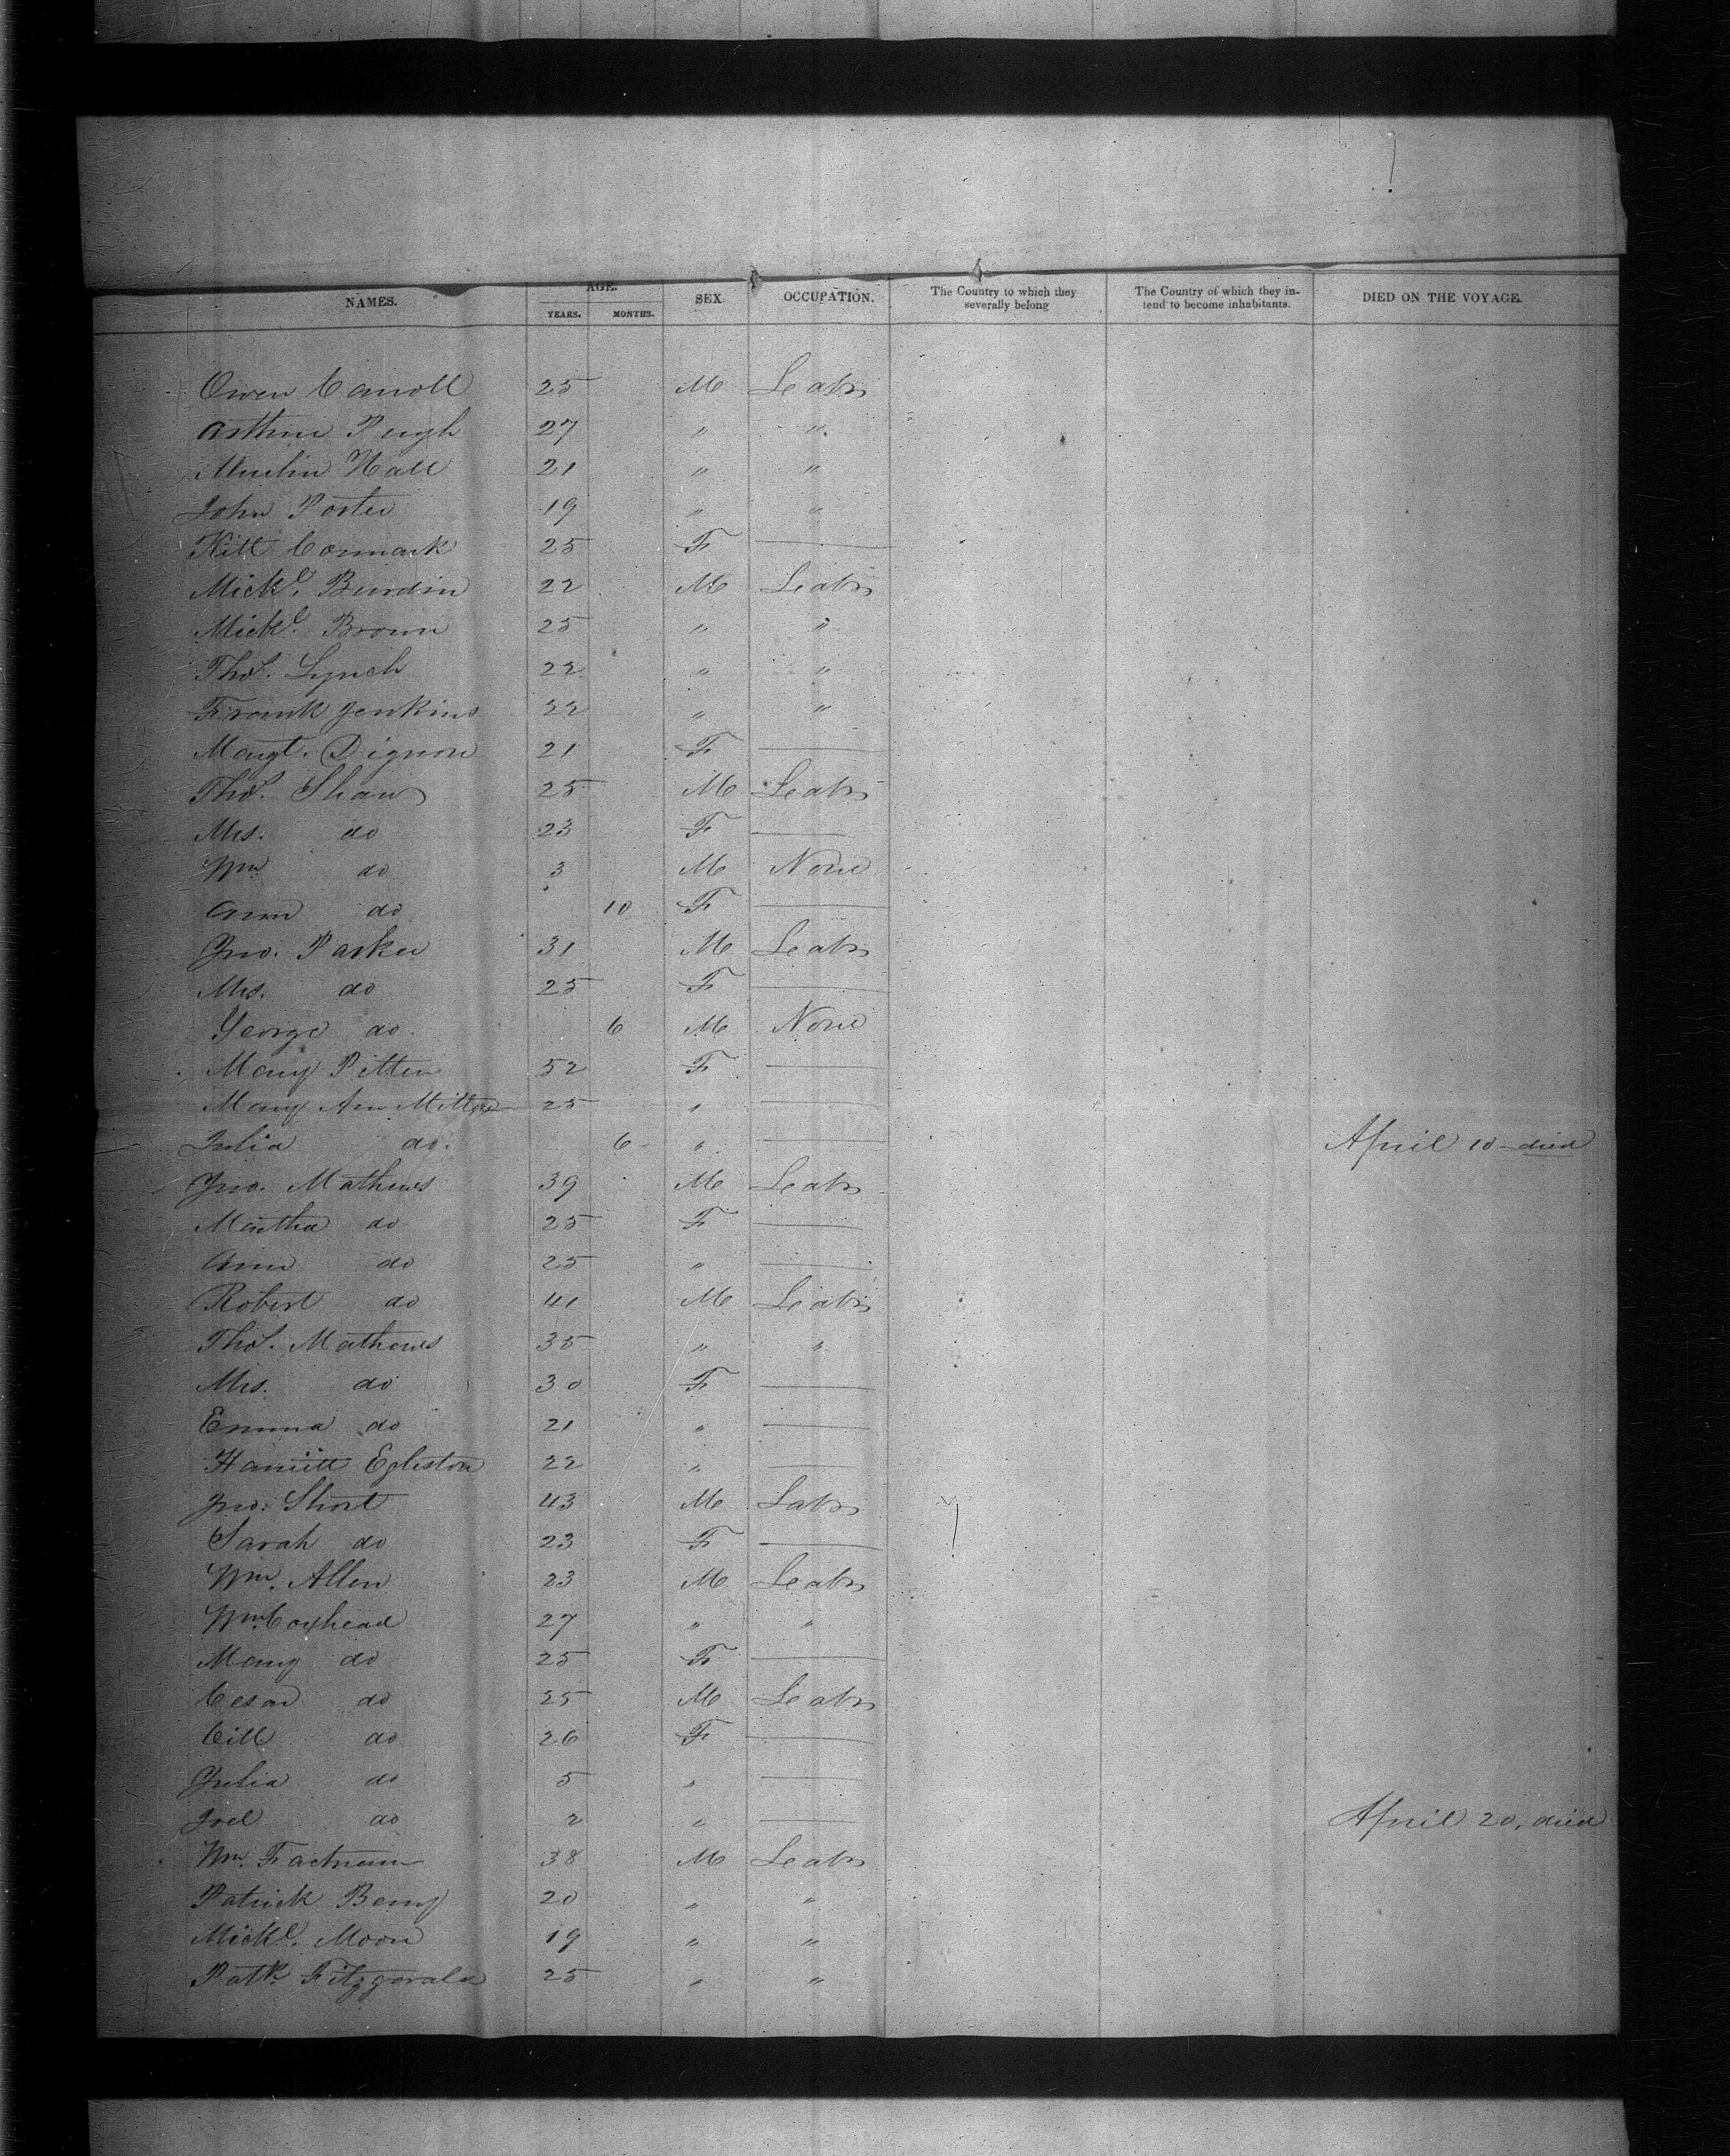 NAMES. AGE. SEX. OCCUPATION. The Country to which they severally belong The Country of which they intend to become inhabitants. DIED ON THE VOYAGE.
YEARS. MONTHS.
Owen Carroll 25 M Leabr
Arthur Pugh 27 " "
Hall 21 " "
John Porter 19 " "
Kitt Cormack 25 F —
Mickl. Burdin 22 M Leabr
Mickl. Brown 25 " "
Thos. Lynch 22 " "
Frank Jenkins 22 " "
Margt. Dignon 21 F —
Thos. Shaw 25 M Leabr
Mrs. do 23 F —
Wm do 3 M None
Ann do 10 F —
Jno. Parker 31 M Leabr
Mrs. do 25 F —
George do. 6 M None
Mary Pitten 52 F —
Mary Ann Milton 25 " —
Julia do. 6 " — April 10 - died
Jno. Mathews 39 M Leabr
Martha do 25 F —
Ann do 25 " —
Robert do 41 M Leabr
Thos. Mathews 35 " "
Mrs. do 30 F —
Emma do 21 " —
Harriitt Egliston 22 " —
Jno. Short 43 M Labr
Sarah do 23 F —
Wm. Allen 23 M Leabr
Wm. Coxhead 27 " "
Mary do 25 F —
Cesar do 25 M Leabr
Cill do 26 F —
Julia do 5 " —
Joel do 2 " — April 20, died
Wm. 38 M Leabr
Patrick Berry 20 " "
Mickl. Moon 19 " "
Patk. Fitzgerald 25 " "